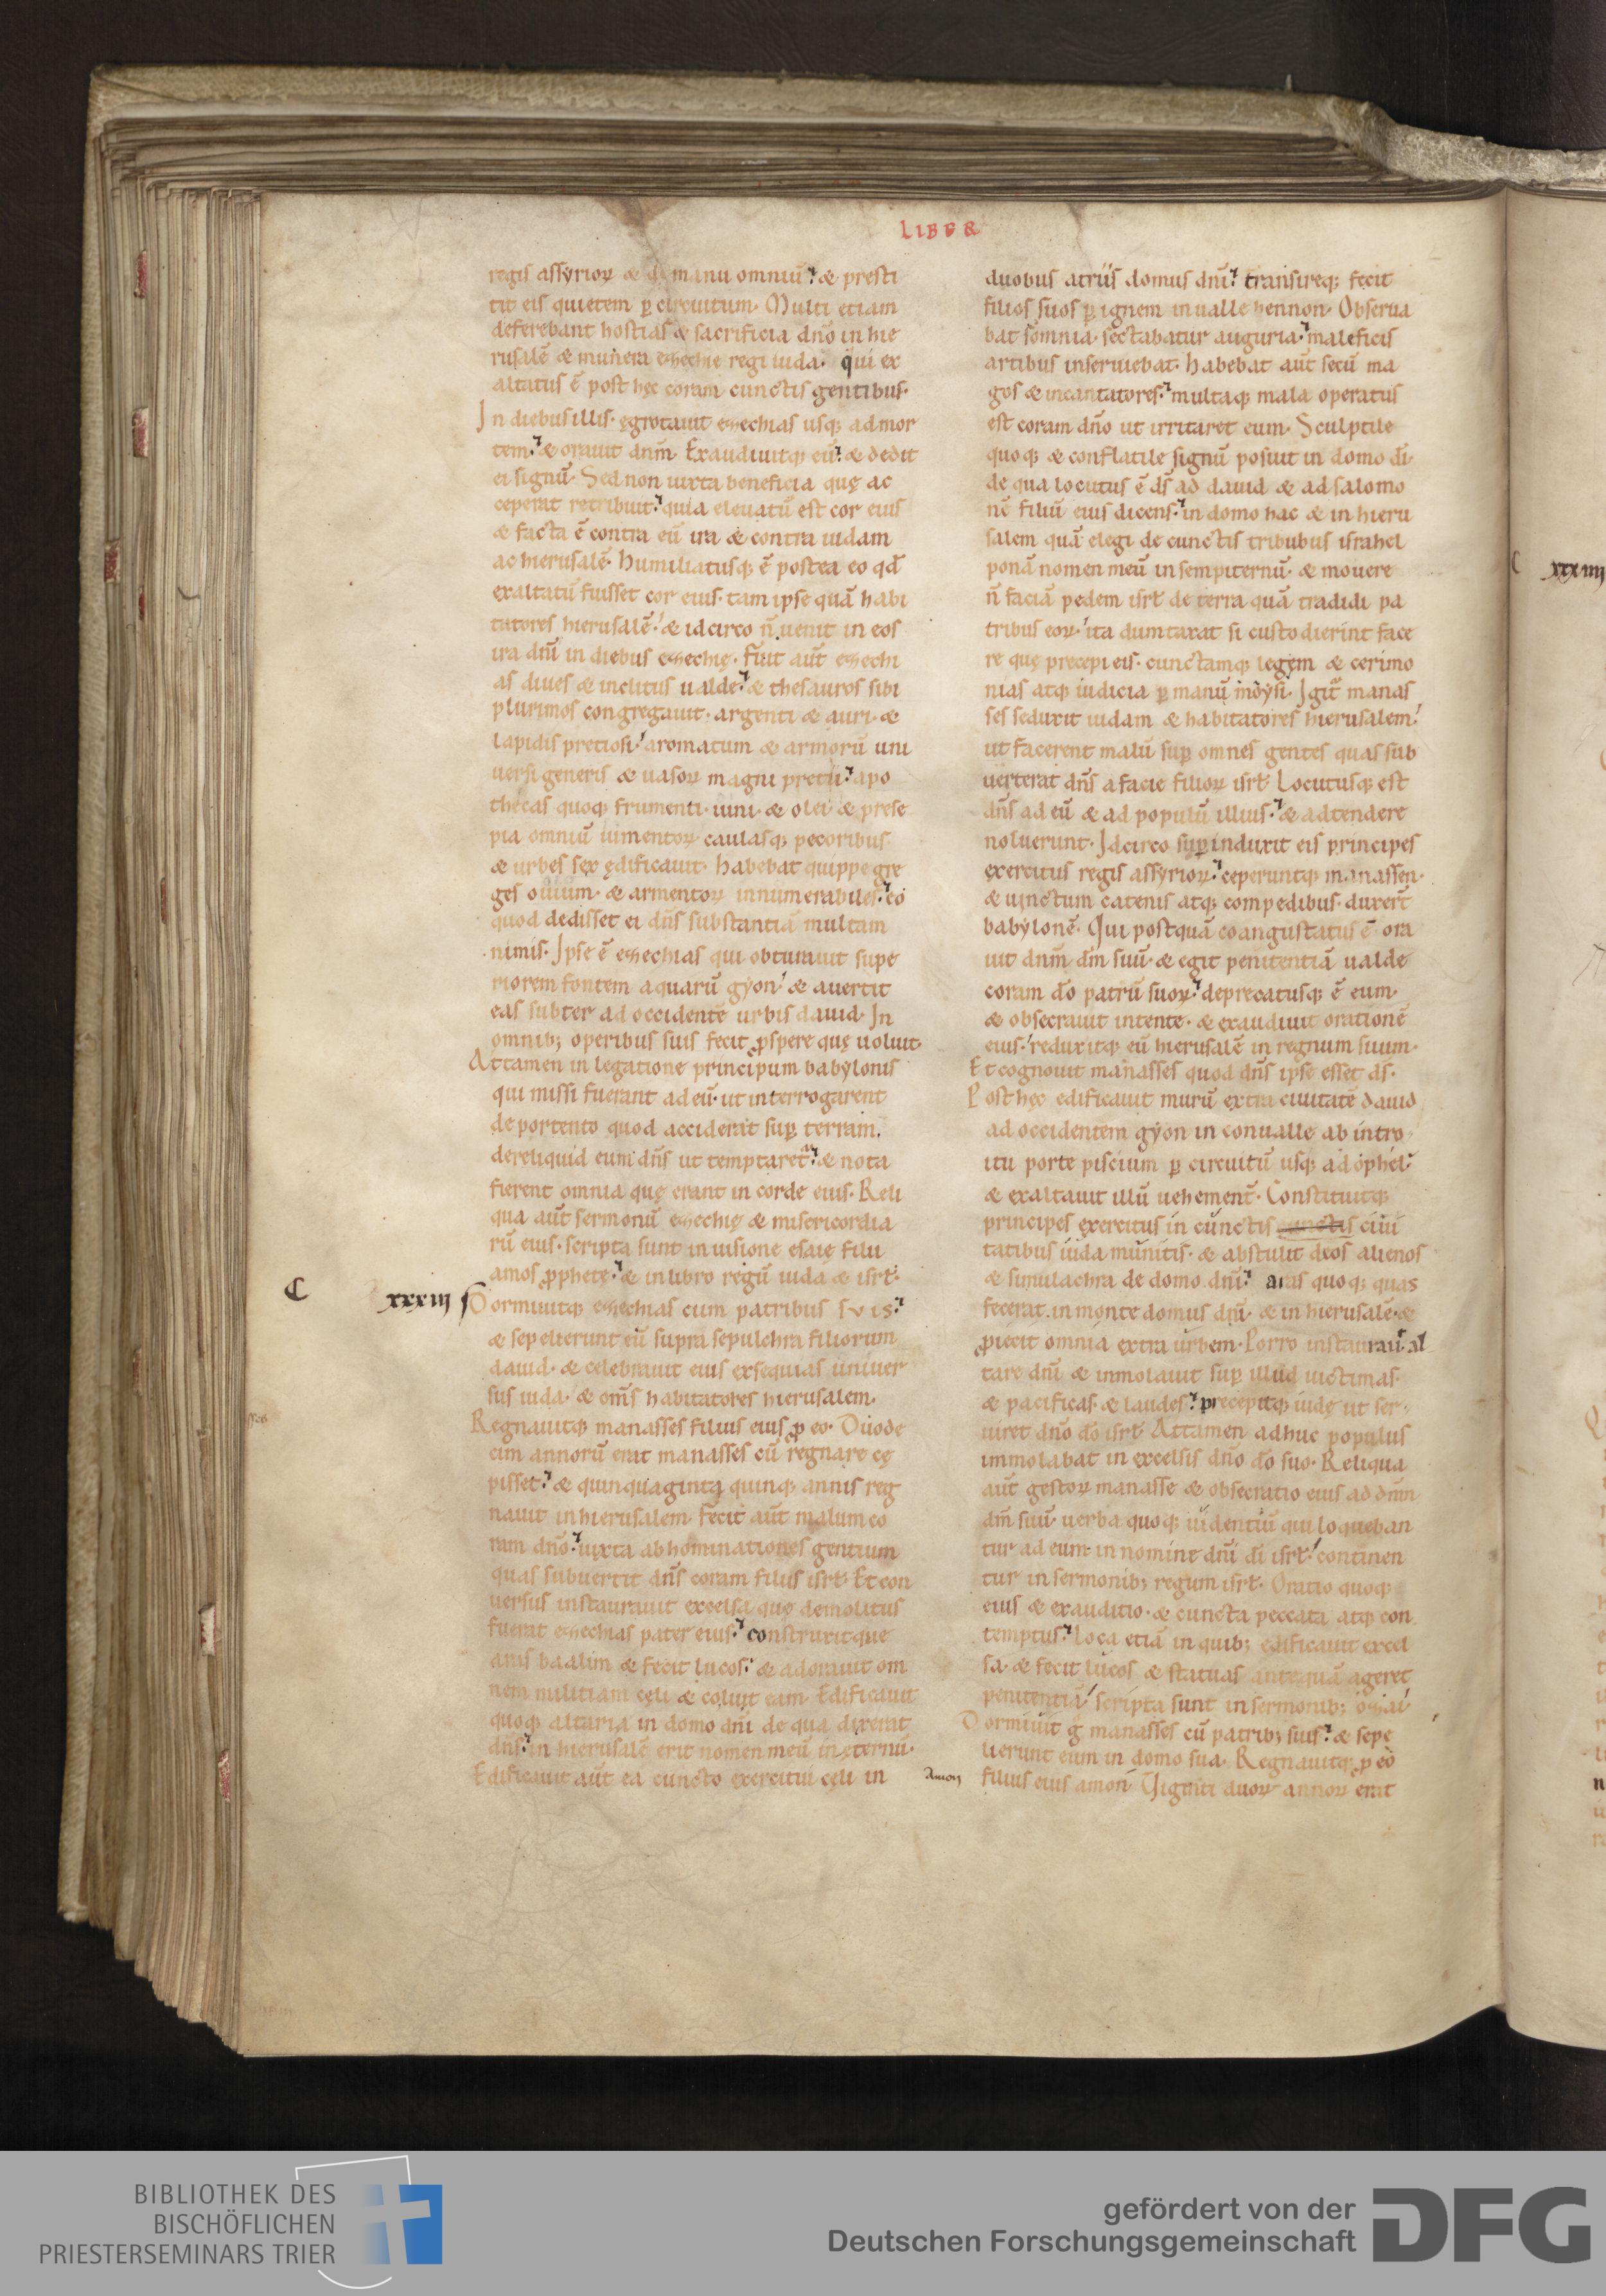 LIBER
regis assyrioꝝ & de manu omniū & presti
tit eis quietem ꝑ circuitum. Multi etiam
deferebant hostias & sacrificia dn̄o in hie
rusalē & munera ezechie regi iuda. qui ex
altatus ē post hęc coram cunctis gentibus.
In diebus illis. ęgrotauit ezechias usq; ad mor
tem & orauit dn̄m. Exaudiuitq; eū & dedit
ei signū. Sed non iuxta beneficia quę ac
ceperat retribuit quia eleuatū est cor eius
& facta ē contra eū ira & contra iudam
ac hierusalē. Humiliatusq; ē postea eo qd̄
exaltatū fuisset cor eius. tam ipse quā habi
tatores hierusalē. & idcirco n̄ uenit in eos
ira dn̄i in diebus ezechię. Fuit aūt ezechi
as diues & inclitus ualde & thesauros sibi
plurimos congregauit. argenti & auri. &
lapidis preciosi. aromatum & armorū uni
uersi generis & uasoꝝ magni precii apo
thecas quoq; frumenti. uini. & olei & prese
pia omniū iumentoꝝ. caulasq; pecoribus
& urbes sex ędificauit. Habebat quippe gre
ges ouium. & armentoꝝ innumerabiles. eo
quod dedisset ei dn̄s substantiā multam
nimis. Ipse ē ezechias qui obturauit supe
riorem fontem aquarū gyon. & auertit
eas subter ad occidentē urbis dauid. In
omnib; operibus suis fecit ꝓspere quę uoluit.
Attamen in legatione principum babylonis
qui missi fuerant ad eū. ut interrogarent
de portento quod acciderat suꝑ terram.
dereliquid eum dn̄s ut temptaret & nota
fierent omnia quę erant in corde eius. Reli
qua aūt sermonū ezechię & misericordia
rū eius. scripta sunt in uisione esaię filii
amos ꝓphetę & in libro regū iuda & isrł.
C xxxiii Dormiuitq; ezechias cum patribus suis
& sepelierunt eū supra sepulchra filiorum
dauid. & celebrauit eius exsequias uniuer
sus iuda. & om̄s habitatores hierusalem.
Regnauitq; manasses filius eius ꝓ eo. Duode
cim annorū erat manasses cū regnare cę
pisset & quinquaginta quinq; annis reg
nauit in hierusalem. Fecit aūt malum co
ram dn̄o iuxta abhominationes gentium
quas subuertit dn̄s coram filiis isrł. Et con
uersus instaurauit excelsa quę demolitus
fuerat ezechias pater eius construxitque
aras baalim & fecit lucos & adorauit om
nem militiam cęli & coluit eam. Edificauit
quoq; altaria in domo dn̄i de qua dixerat
dn̄s in hierusalē erit nomen meū in ęternū.
Edificauit aūt ea cuncto exercitui cęli in
duobus atriis domus dn̄i transireq; fecit
filios suos ꝑ ignem in ualle hennon. Obserua
bat somnia. sectabatur auguria. maleficis
artibus inseruiebat. habebat aūt secū ma
gos & incantatores multaq; mala operatus
est coram dn̄o ut irritaret eum. Sculptile
quoq; & conflatile signū posuit in domo dī.
de qua locutus ē ds̄ ad dauid & ad salomo
nē filiū eius dicens in domo hac & in hieru
salem quā elegi de cunctis tribubus israhel
ponā nomen meū in sempiternū. & mouere
n̄ faciā pedem isrł de terra quā tradidi pa
tribus eoꝝ ita dumtaxat si custodierint face
re quę precepi eis. cunctamq; legem & cerimo
nias atq; iudicia ꝑ manū moysi. Igit̄ manas
ses seduxit iudam & habitatores hierusalem
ut facerent malū suꝑ omnes gentes quas sub
uerterat dn̄s a facie filioꝝ isrł. Locutusq; est
dn̄s ad eū & ad populū illius & adtendere
noluerunt. Idcirco suꝑinduxit eis principes
exercitus regis assyrioꝝ ceperuntq; manassen.
& uinctum catenis atq; compedibus. duxer̄t
babylonē. Qui postquā coangustatus ē. ora
uit dn̄m dm̄ suū. & egit penitentiā ualde
coram do patrū suoꝝ deprecatusq; ē eum.
& obsecrauit intente. & exaudiuit orationē
eius. reduxitq; eū hierusalē in regnum suum.
Et cognouit manasses quod dn̄s ipse esset ds̄.
Post hęc edificauit murū extra ciuitatē dauid
ad occidentem gyon in conualle ab intro
itu porte piscium ꝑ circuitū usq; ad ophel
& exaltauit illū uehement̄. Constituitq;
principes exercitus in cunctis cunctis ciui
tatibus iuda munitis. & abstulit deos alienos
& simulachra de domo dn̄i aras quoq; quas
fecerat in monte domus dn̄i. & in hierusalē. &
ꝓiecit omnia extra urbem. Porro instaurau̅ al
tare dn̄i & inmolauit suꝑ illud uictimas.
& pacificas. & laudes precepitq; iudę ut ser
uiret dn̄o do isrł. Attamen adhuc populus
immolabat in excelsis dn̄o do suo. Reliqua
aūt gestoꝝ manasse & obsecratio eius ad dn̄m
dm̄ suū. uerba quoq; uidentiū qui loqueban
tur ad eum in nomine dn̄i dī isrł. continen
tur in sermonib; regum isrł. Oratio quoq;
eius & exauditio. & cuncta peccata atq; con
temptus. loca etiā in quib; edificauit excel
sa. & fecit lucos & statuas antequā ageret
penitentiā. scripta sunt in sermonib; ozai.
Dormiuit g̊ manasses cū patrib; suis & sepe
lierunt eum in domo sua. Regnauitq; ꝓ eo
Amon filius eius amon. Uiginti duoꝝ annoꝝ erat
C xxxiiii
BIBLIOTHEK DES
BISCHÖFLICHEN
PRIESTERSEMINARS TRIER
gefördert von der
Deutschen Forschungsgemeinschaft
DFG